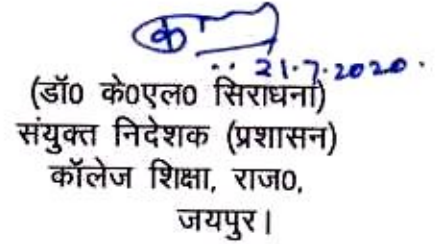 21.7.2020.
(डॉ0 के0एल0 सिराधना)
संयुक्त निदेशक (प्रशासन)
कॉलेज शिक्षा, राज0,
जयपुर।